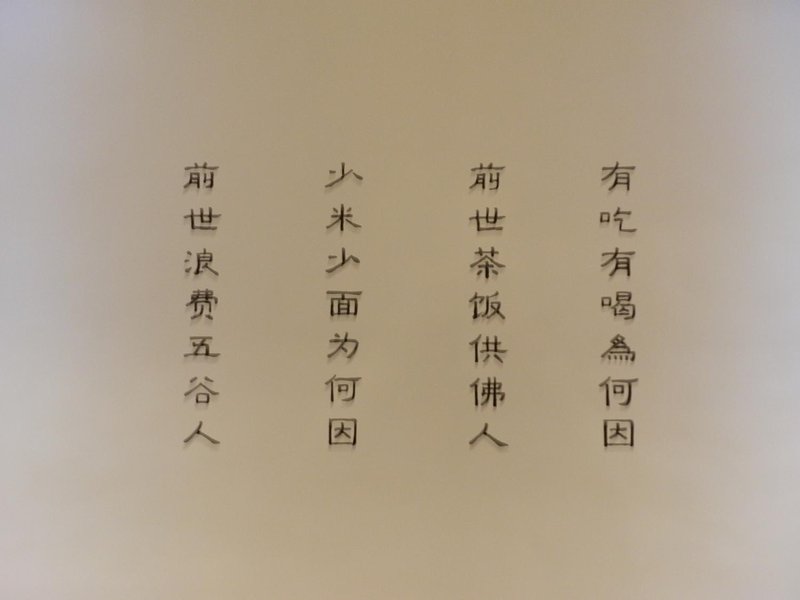 有吃有喝為何因
前世茶饭供佛人
少米少面为何因
前世浪费五谷人